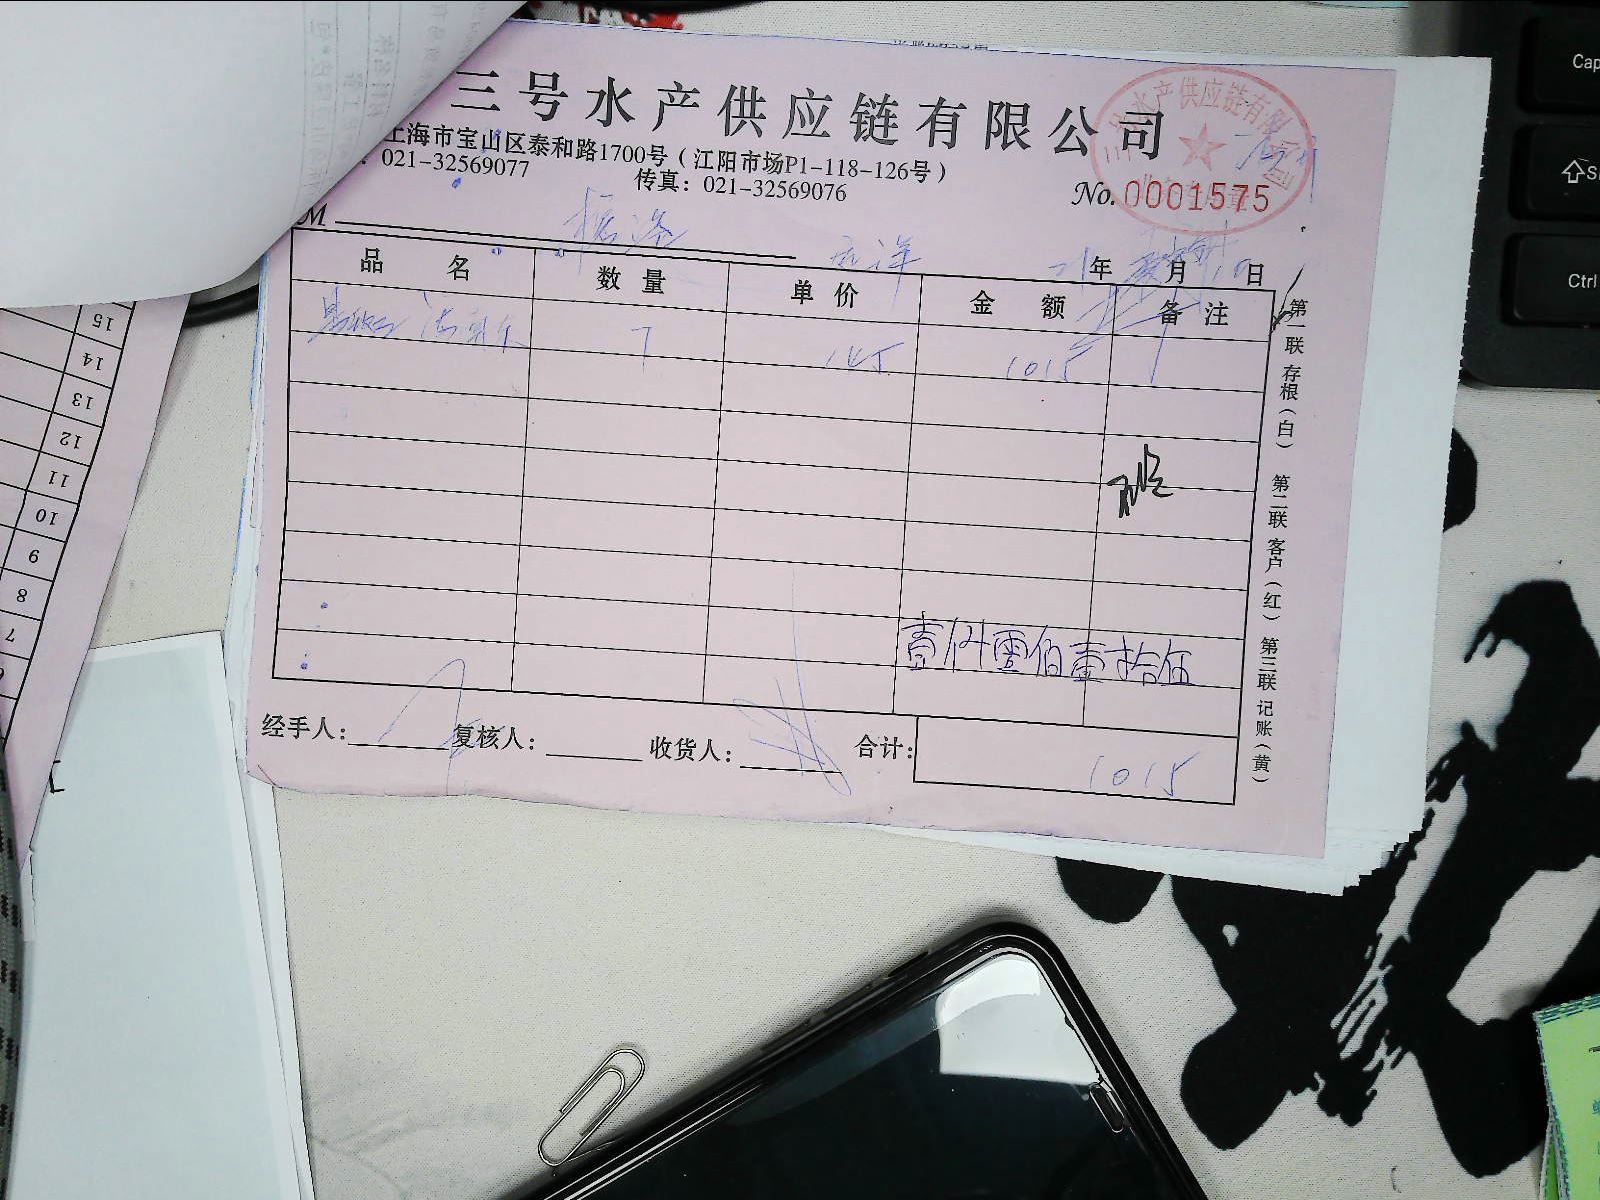 三号水产供应链有限公司
上海市宝山区泰和路1700号（江阳市场P1-118-126号）
021-32569077
传真：021-32569076
No. 0001575
M
21年 月 日
品名 数量 单价 金额 备注
7 145 1015
壹仟零佰壹拾伍
经手人： 复核人： 收货人： 合计：
1015
第一联 存根（白） 第二联 客户（红） 第三联 记账（黄）
三号水产供应链有限公司
15
14
13
12
11
10
9
8
7
6
Cap
Ctrl